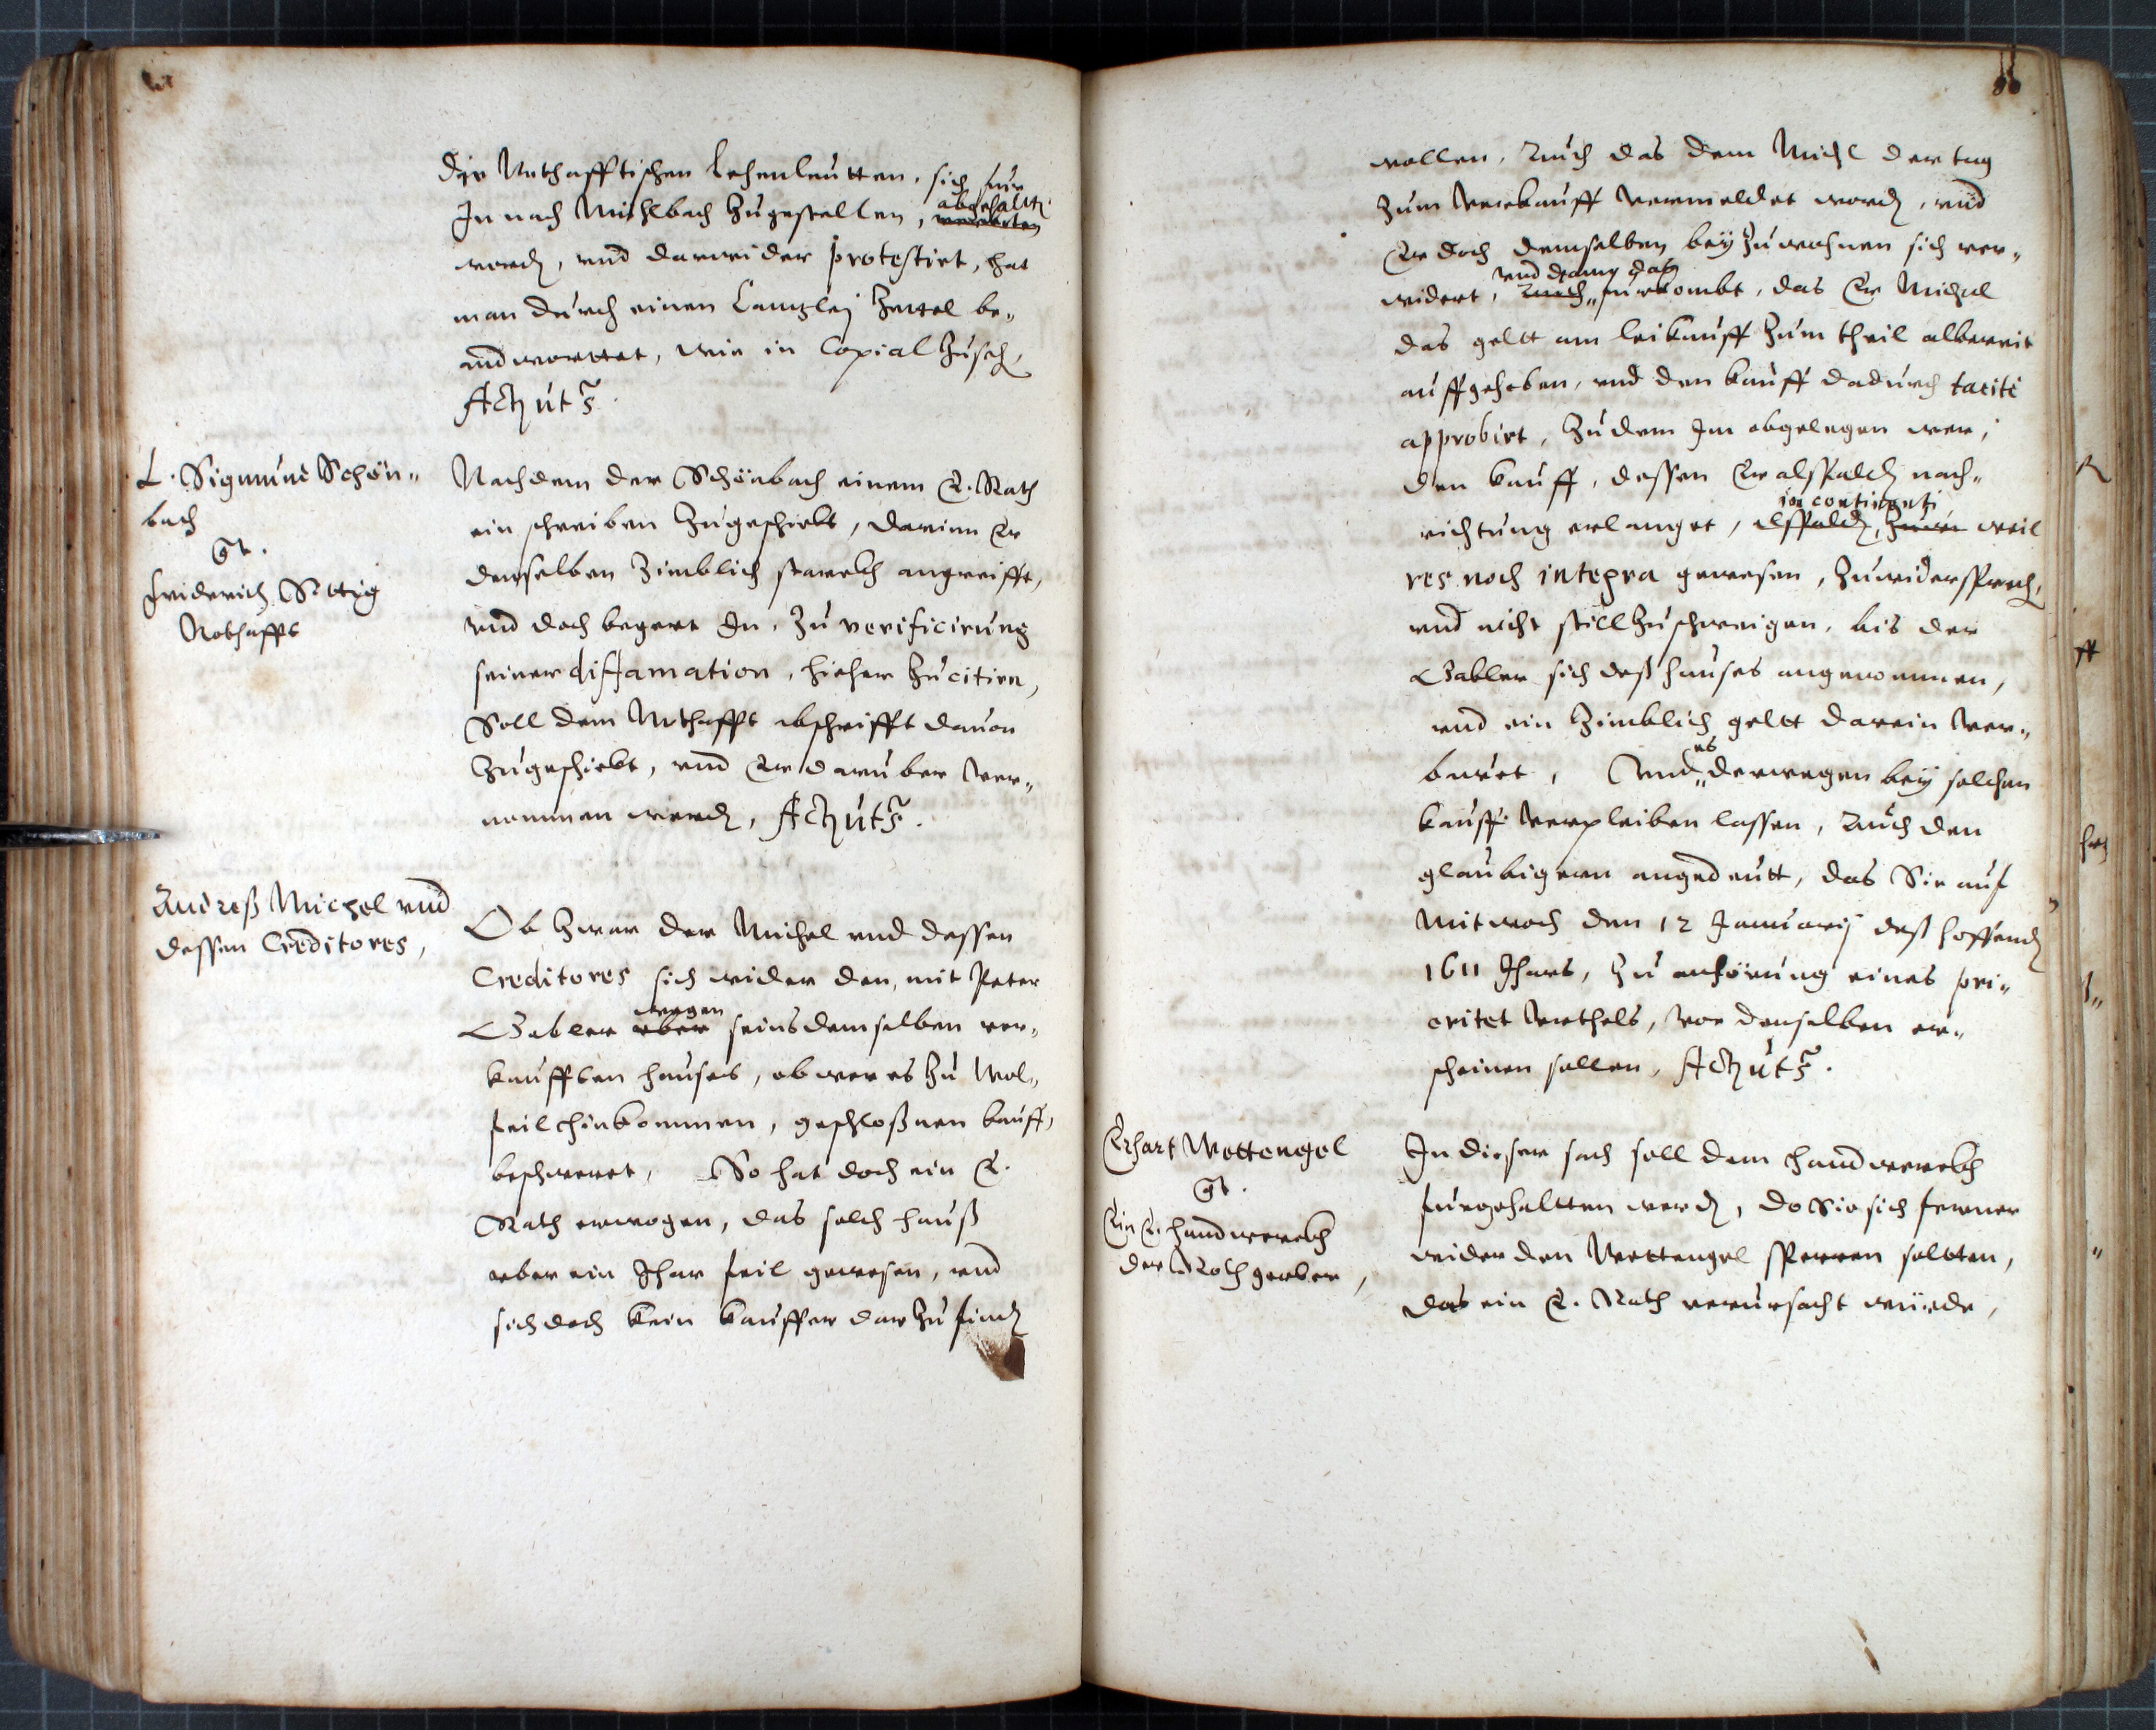 die Nothafftischen Lehenleutten, sich fur
In nach Muhlbach zugestellen, abgehaltt
word, vnd darwider protestirt, hat
man durch einen Cantzlej Zettel be„
andworttet, wie in Copial zuseh,
Act ut s.
L. Sigmund Schön„
bach
Ct.
Friderich Sittig
Nothafft
Nachdem der Schönbach einem E. Rath
ein schreiben zugeschickt, darinn Er
denselben zimblich starckh angreifft,
vnd doch begert In, zu verificirung
seiner diffamation, hieher zu citirn,
Soll dem Nothafft abschrifft dauon
zugeschickt, vnd Er daruber ver„
nommen werd, Act ut s.
Andreß Michel vnd
dessen Creditores,
Ob zwar der Michel vnd dessen
Creditores sich wider den, mit Peter
Gabler vber wegen seins demselben ver„
kaufften hauses, ob wer es zu wol„
feil hinkommen, geschloßnen kauff,
beschweret, So hat doch ein E.
Rath erwogen, das solch hauß
vber ein Jhar feil gewesen, vnd
sich doch kein kauffer darzu find
86
wollen, Auch das dem Michl der tag
zum verkauff vermeldet word, vnd
Er doch demselben beyzuwohnen sich wer„
widert, Auch furkombt, das Er Michel
das geltt am leikauff zum theil albereit
auffgehoben, vnd den kauff dadurch tacitè
approbirt, zu dem Im obgelegen wer,
den kauff, dessen Er alspald nach„
richtung erlanget, alspald, in continenti weil
res noch integra gewesen, zuwidersprech,
vnd nicht still zuschweigen, bis der
Gabler sich deß hauses angenommen,
vnd ein zimblich geltt darein ver„
bauet, Vnd es derwegen bey solchen
kauff verpleiben lassen, Auch den
glaubigern angedeutt, das Sie auf
Mitwoch den 12 Januarij deß hoffend
1611 Jhars, zu anhörung eines pri„
oritet vrthels, vor denselben er„
scheinen sollen, Act ut s.
Erhart Wettengel
Ct.
Ein E. handwerckh
der Rothgerber,
In dieser sach soll dem handwerckh
furgehaltten werd, do Sie sich ferner
wider den Wettengel sperren soltten,
das ein E. Rath verursacht würde,